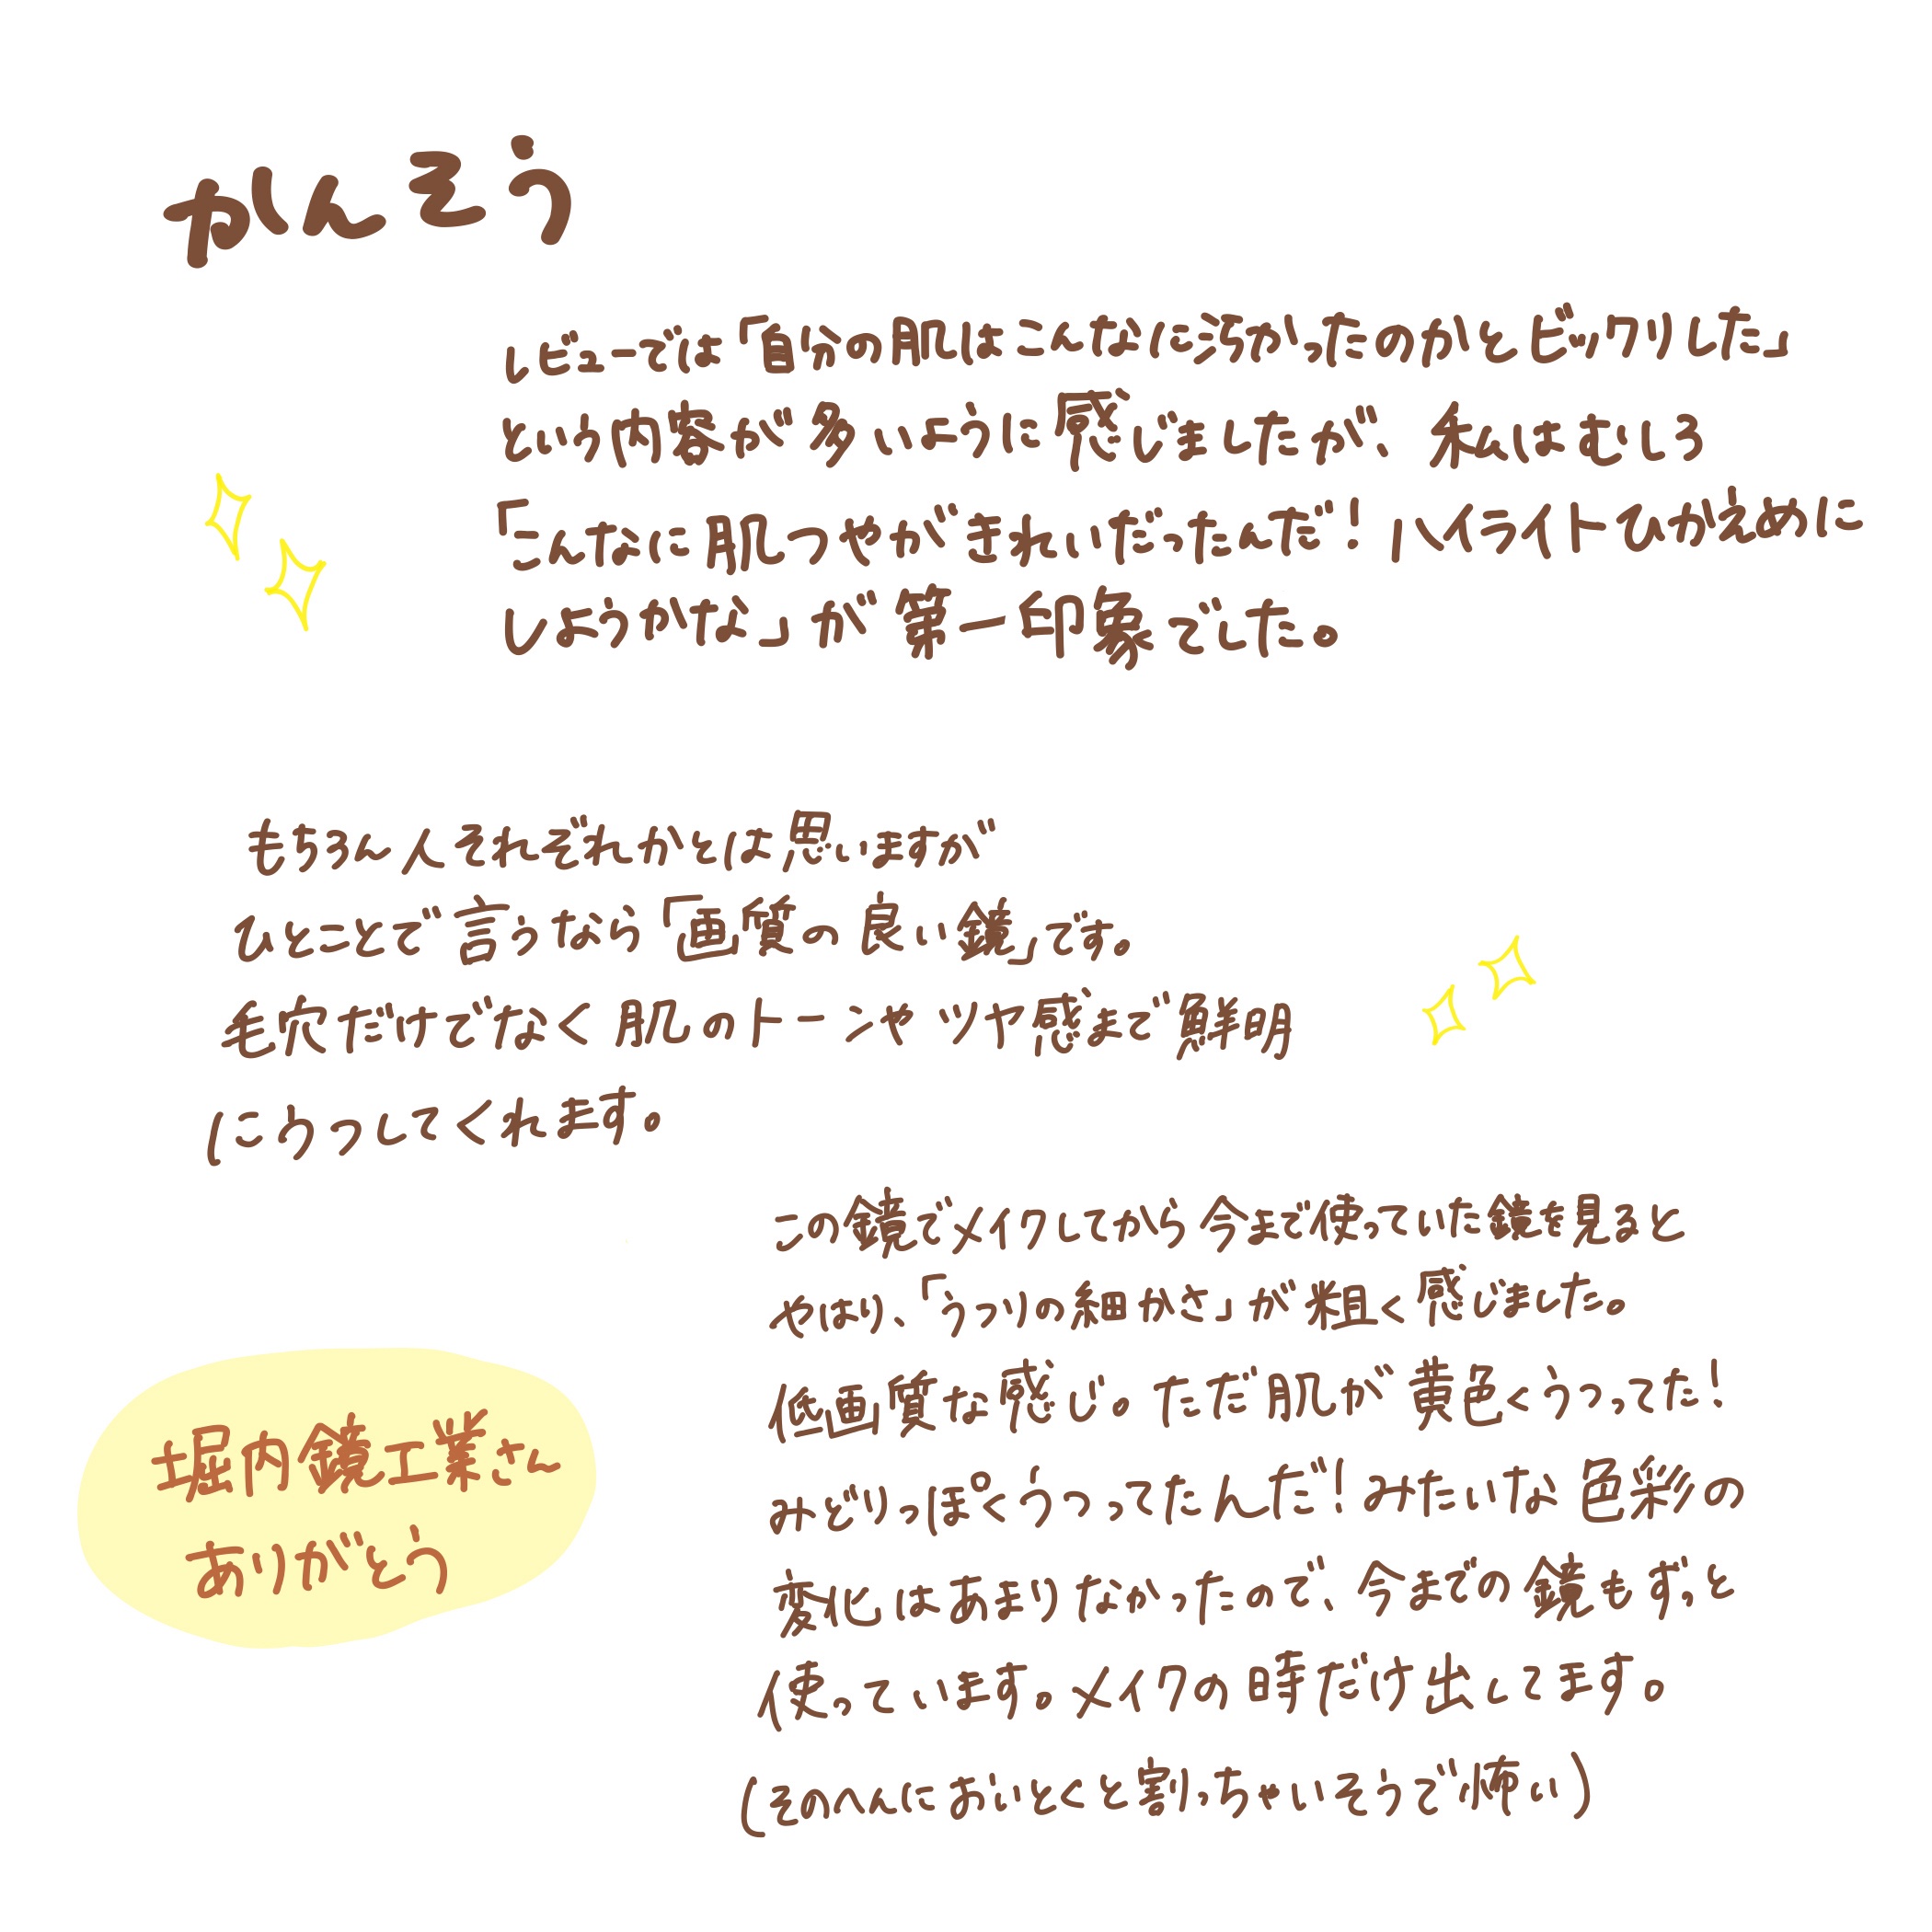 かんそう
レビューでは「自分の肌はこんなに汚かったのかとビックリした」
という内容が多いように感じましたが、私はむしろ
「こんなに肌つやがきれいだったんだ！ハイライトひかえめに
しようかな」が第一印象でした。
もちろん人それぞれかとは思いますが
ひとことで言うなら「画質の良い鏡」です。
毛穴だけでなく肌のトーンやツヤ感まで鮮明
にうつしてくれます。
この鏡でメイクしてから今まで使っていた鏡を見ると
やはり、「うつりの細かさ」が粗く感じました。
低画質な感じ。ただ肌が黄色くうつってた！
みどりっぽくうつってたんだ！みたいな色彩の
変化はあまりなかったので、今までの鏡もずっと
使っています。メイクの時だけ出してます。
(そのへんにおいとくと割っちゃいそうで怖い)
堀内鏡工業さん
ありがとう